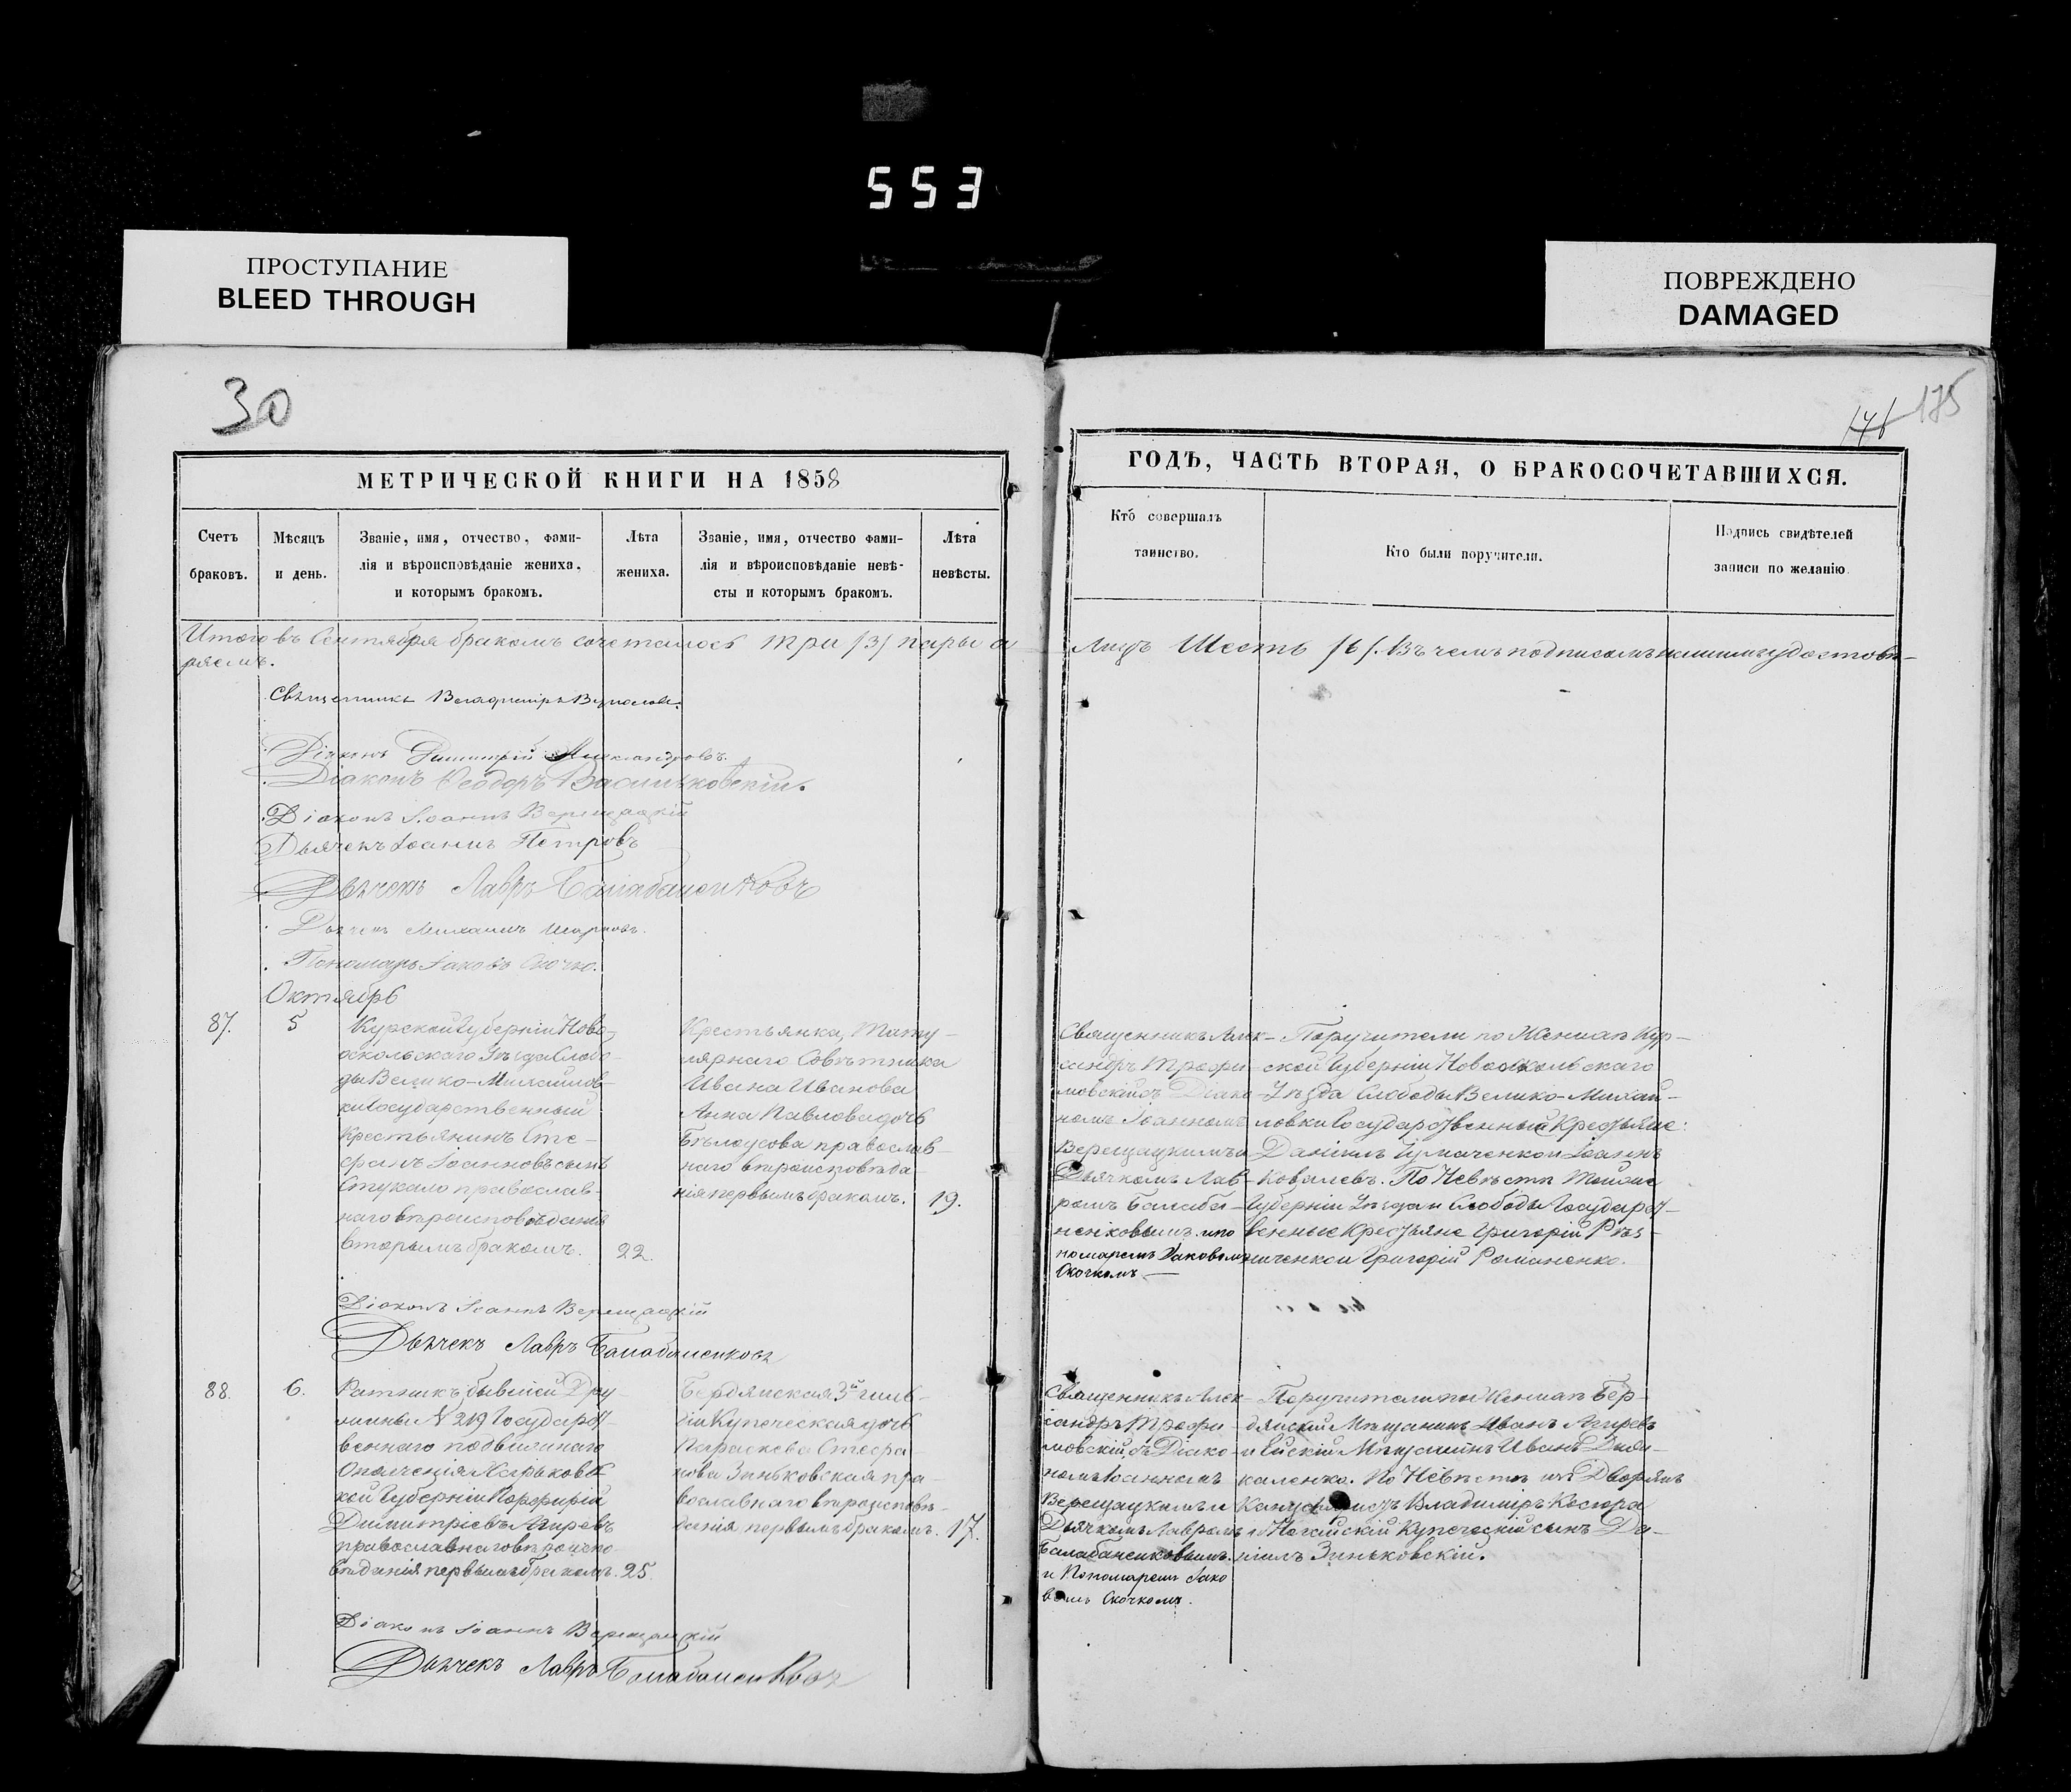 553
ПРОСТУПАНИЕ
BLEED THROUGH
ПОВРЕЖДЕНО
DAMAGED
30
175
МЕТРИЧЕСКОЙ КНИГИ НА 1858
ГОДЪ, ЧАСТЬ ВТОРАЯ, О БРАКОСОЧЕТАВШИХСЯ.
Счетъ
браковъ.
Мѣсяцъ
и день.
Званіе, имя, отчество, фами-
лія и вѣроисповѣданіе жениха,
и которымъ бракомъ.
Лѣта
жениха.
Званіе, имя, отчество фами-
лія и вѣроисповѣданіе невѣ-
сты и которымъ бракомъ.
Лѣта
невѣсты.
Кто совершалъ
таинство.
Кто были поручители.
Подпись свидѣтелей
записи по желанію.
Итого въ Сентября бракомъ сочеталось три /3/ пары а
Лицъ Шесть /6/. Въ чемъ подписомъ нашимъ удостовѣ-
ряемъ.
Священникъ Владимиръ
Діаконъ Димитрій Александровъ.
Діаконъ Ѳеодоръ Васильковскій.
Діаконъ Іоаннъ Верещацкій
Дьячекъ Іоаннъ Петровъ
Дьячекъ Лавръ Балабаненковъ
Дьячекъ Михаилъ
Пономарь Іаковъ Скочко.
Октябрь
87.
5
Курской Губерніи Ново-
оскольскаго Уѣзда Слобо-
ды Велико-Михайлов-
ки Государственный
Крестьянинъ Сте-
фанъ Іоанновъ сынъ
Стукало православ-
наго вѣроисповѣданія
вторымъ бракомъ.
22.
Крестьянка, Титу-
лярнаго Совѣтника
Ивана Иванова
Анна Павлова дочь
Бѣлоусова православ-
наго вѣроисповѣда-
нія первымъ бракомъ.
19.
Священникъ Алек-
сандръ Трофи-
мовскій съ Діако-
номъ Іоанномъ
Верещацкимъ
Дьячкомъ Лав-
ромъ Балаба-
ненковымъ и по
номаремъ Іаковомъ
Скочкомъ
Поручители по Женихѣ Кур-
ской Губерніи Новооскольскаго
Уѣзда Слободы Велико-Михай-
ловки Государственный Крестьяне:
Даніилъ и Іоаннъ
Ковалевъ. По Невѣстѣ Тойже
Губерніи Уѣзда и Слободы Государст-
венные Крестьяне Григорій
и Григорій Романенко.
Діаконъ Іоаннъ Верещацкій
Дьячекъ Лавръ Балабаненковъ
88.
6.
Ратникъ бывшей Дру-
жины № 219 Государст-
веннаго подвижнаго
Ополченія Харьковс-
кой Губерніи Порфирій
Димитріевъ Агиревъ
православнаго вѣроиспо-
вѣданія первымъ бракомъ.
25.
Бердянская 3й гиль-
діи Купеческая дочь
Параскева Стефа-
нова Зиньковская пра-
вославнаго вѣроисповѣ-
данія первымъ бракомъ.
17.
Священникъ Алек-
сандръ Трофи-
мовскій, съ Діако-
номъ Іоанномъ
Верещацкимъ и
Дьячкомъ Лавромъ
Балабаненковымъ.
и Пономаремъ Іако
вомъ Скочкомъ.
Поручители по Женихѣ Бер-
дянскій Мѣщанинъ Иванъ Агиревъ
и Ейскій Мѣщанинъ Иванъ
каленко. По Невѣстѣ изъ Дворянъ
Канцеляристъ Владиміръ Косюра
и Ногайскій Купеческій сынъ Да-
ніилъ Зиньковскій.
Діаконъ Іоаннъ Верещацкій
Дьячекъ Лавръ Балабаненковъ